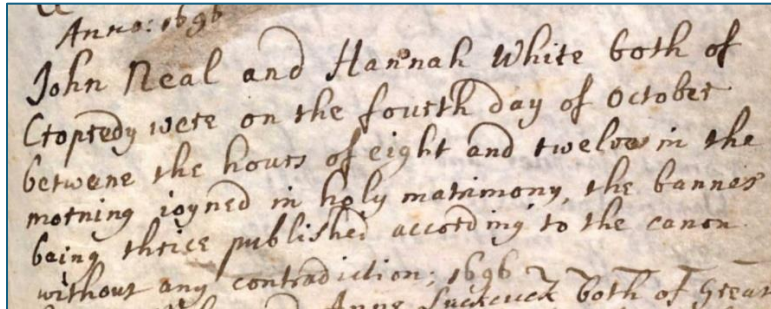 Anno: 1696
John Neal and Hannah White both of
Cropredy were on the fourth day of October
betwene the hours of eight and twelve in the
morning joyned in holy matrimony, the bannes
being thrice published according to the canon
without any contradiction; 1696
Anne Suckcuck both of Great